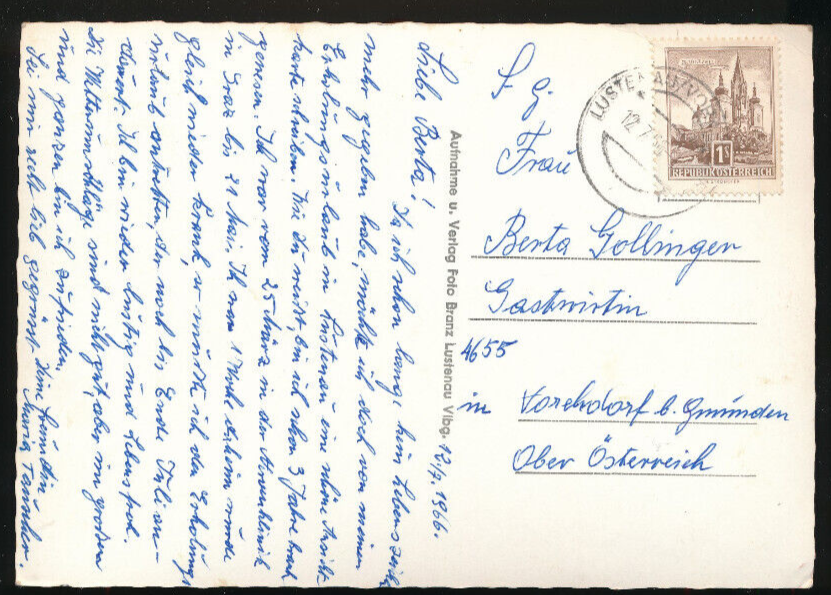 12.7.1966.
Liebe Berta!
Da ich schon lange kein Lebenszeichen
mehr gegeben habe, möchte ich doch von meinem
Erholungsurlaub in Lustenau eine schöne Ansicht-
karte schreiben. Wie du weißt, bin ich schon 3 Jahre krank
gewesen. Ich war von 25 März in der Nervenklinik
in Graz bis 21 Mai. Ich war 1 Woche daheim wurde
gleich wieder krank so mußte ich den Erholungs-
urlaub antreten, der noch bis Ende Juli an-
dauert. Ich bin wieder lustig und lebensfroh.
Die Wetterumschläge sind nicht gut, aber im großen
und ganzen bin ich zufrieden.
Sei nun recht lieb gegrüßt deine Freundin
Maria
Aufnahme u. Verlag Foto Branz Lustenau Vlbg.
LUSTENAU
12.7.
REPUBLIK ÖSTERREICH
1S
S. g.
Frau
Berta Gollinger
Gastwirtin
4655
in Vorchdorf b. Gmünden
Ober Österreich